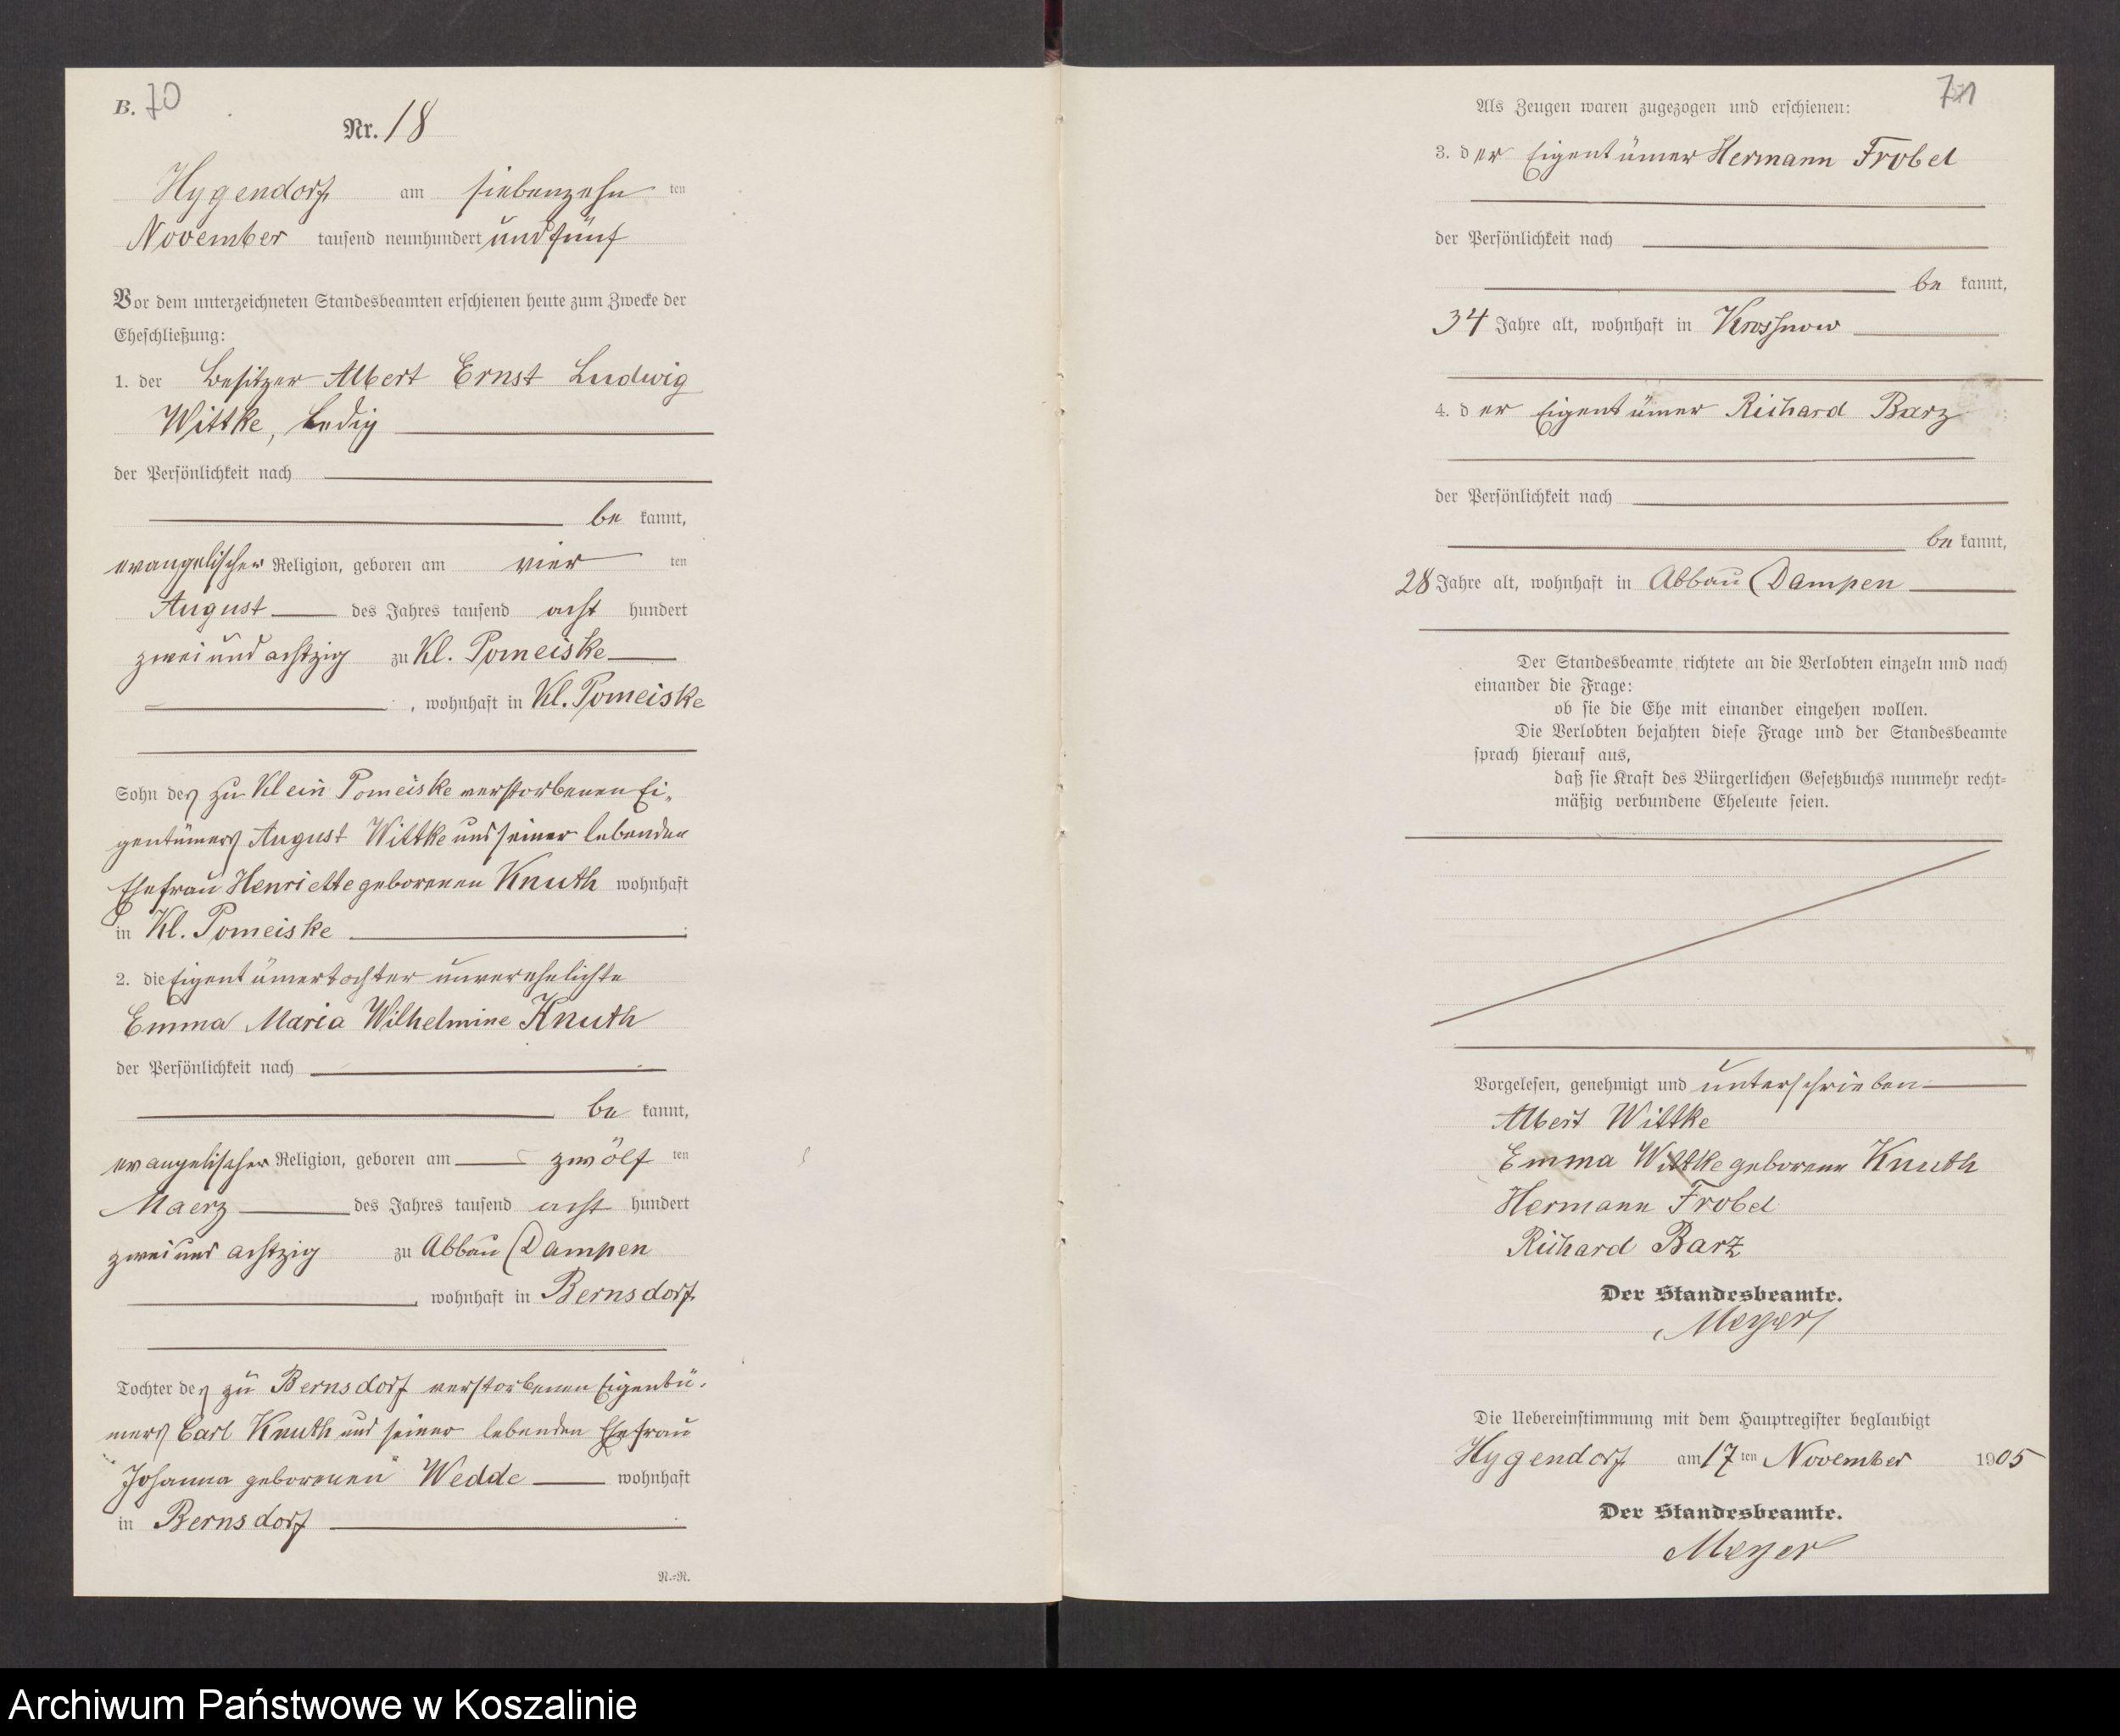 B. 70
Nr. 18
Hygendorf am siebenzehn ten
November tausend neunhundert und fünf
Vor dem unterzeichneten Standesbeamten erschienen heute zum Zwecke der
Eheschließung:
1. der Besitzer Albert Ernst Ludwig
Wittke, ledig
der Persönlichkeit nach
be kannt,
evangelischer Religion, geboren am vier ten
August des Jahres tausend acht hundert
zwei und achtzig zu Kl. Pomeiske
, wohnhaft in Kl. Pomeiske
Sohn des zu Klein Pomeiske verstorbenen Ei-
gentümers August Wittke und seiner lebenden
Ehefrau Henriette geborenen Knuth wohnhaft
in Kl. Pomeiske
2. die Eigentümertochter unverehelichte
Emma Maria Wilhelmine Knuth
der Persönlichkeit nach
be kannt,
evangelischer Religion, geboren am zwölf ten
Maerz des Jahres tausend acht hundert
zwei und achtzig zu Abbau Dampen
, wohnhaft in Bernsdorf
Tochter des zu Bernsdorf verstorbenen Eigentü-
mers Carl Knuth und seiner lebenden Ehefrau
Johanna geborenen Wedde wohnhaft
in Bernsdorf
N.-R.
71
Als Zeugen waren zugezogen und erschienen:
3. der Eigentümer Hermann Frobel
der Persönlichkeit nach
be kannt,
34 Jahre alt, wohnhaft in Krossnow
4. der Eigentümer Richard Barz
der Persönlichkeit nach
be kannt,
28 Jahre alt, wohnhaft in Abbau Dampen
Der Standesbeamte richtete an die Verlobten einzeln und nach
einander die Frage:
ob sie die Ehe mit einander eingehen wollen.
Die Verlobten bejahten diese Frage und der Standesbeamte
sprach hierauf aus,
daß sie Kraft des Bürgerlichen Gesetzbuchs nunmehr recht-
mäßig verbundene Eheleute seien.
Vorgelesen, genehmigt und unterschrieben
Albert Wittke
Emma Wittke geborene Knuth
Hermann Frobel
Richard Barz
Der Standesbeamte.
Meyer
Die Uebereinstimmung mit dem Hauptregister beglaubigt
Hygendorf am 17 ten November 1905
Der Standesbeamte.
Meyer
Archiwum Państwowe w Koszalinie